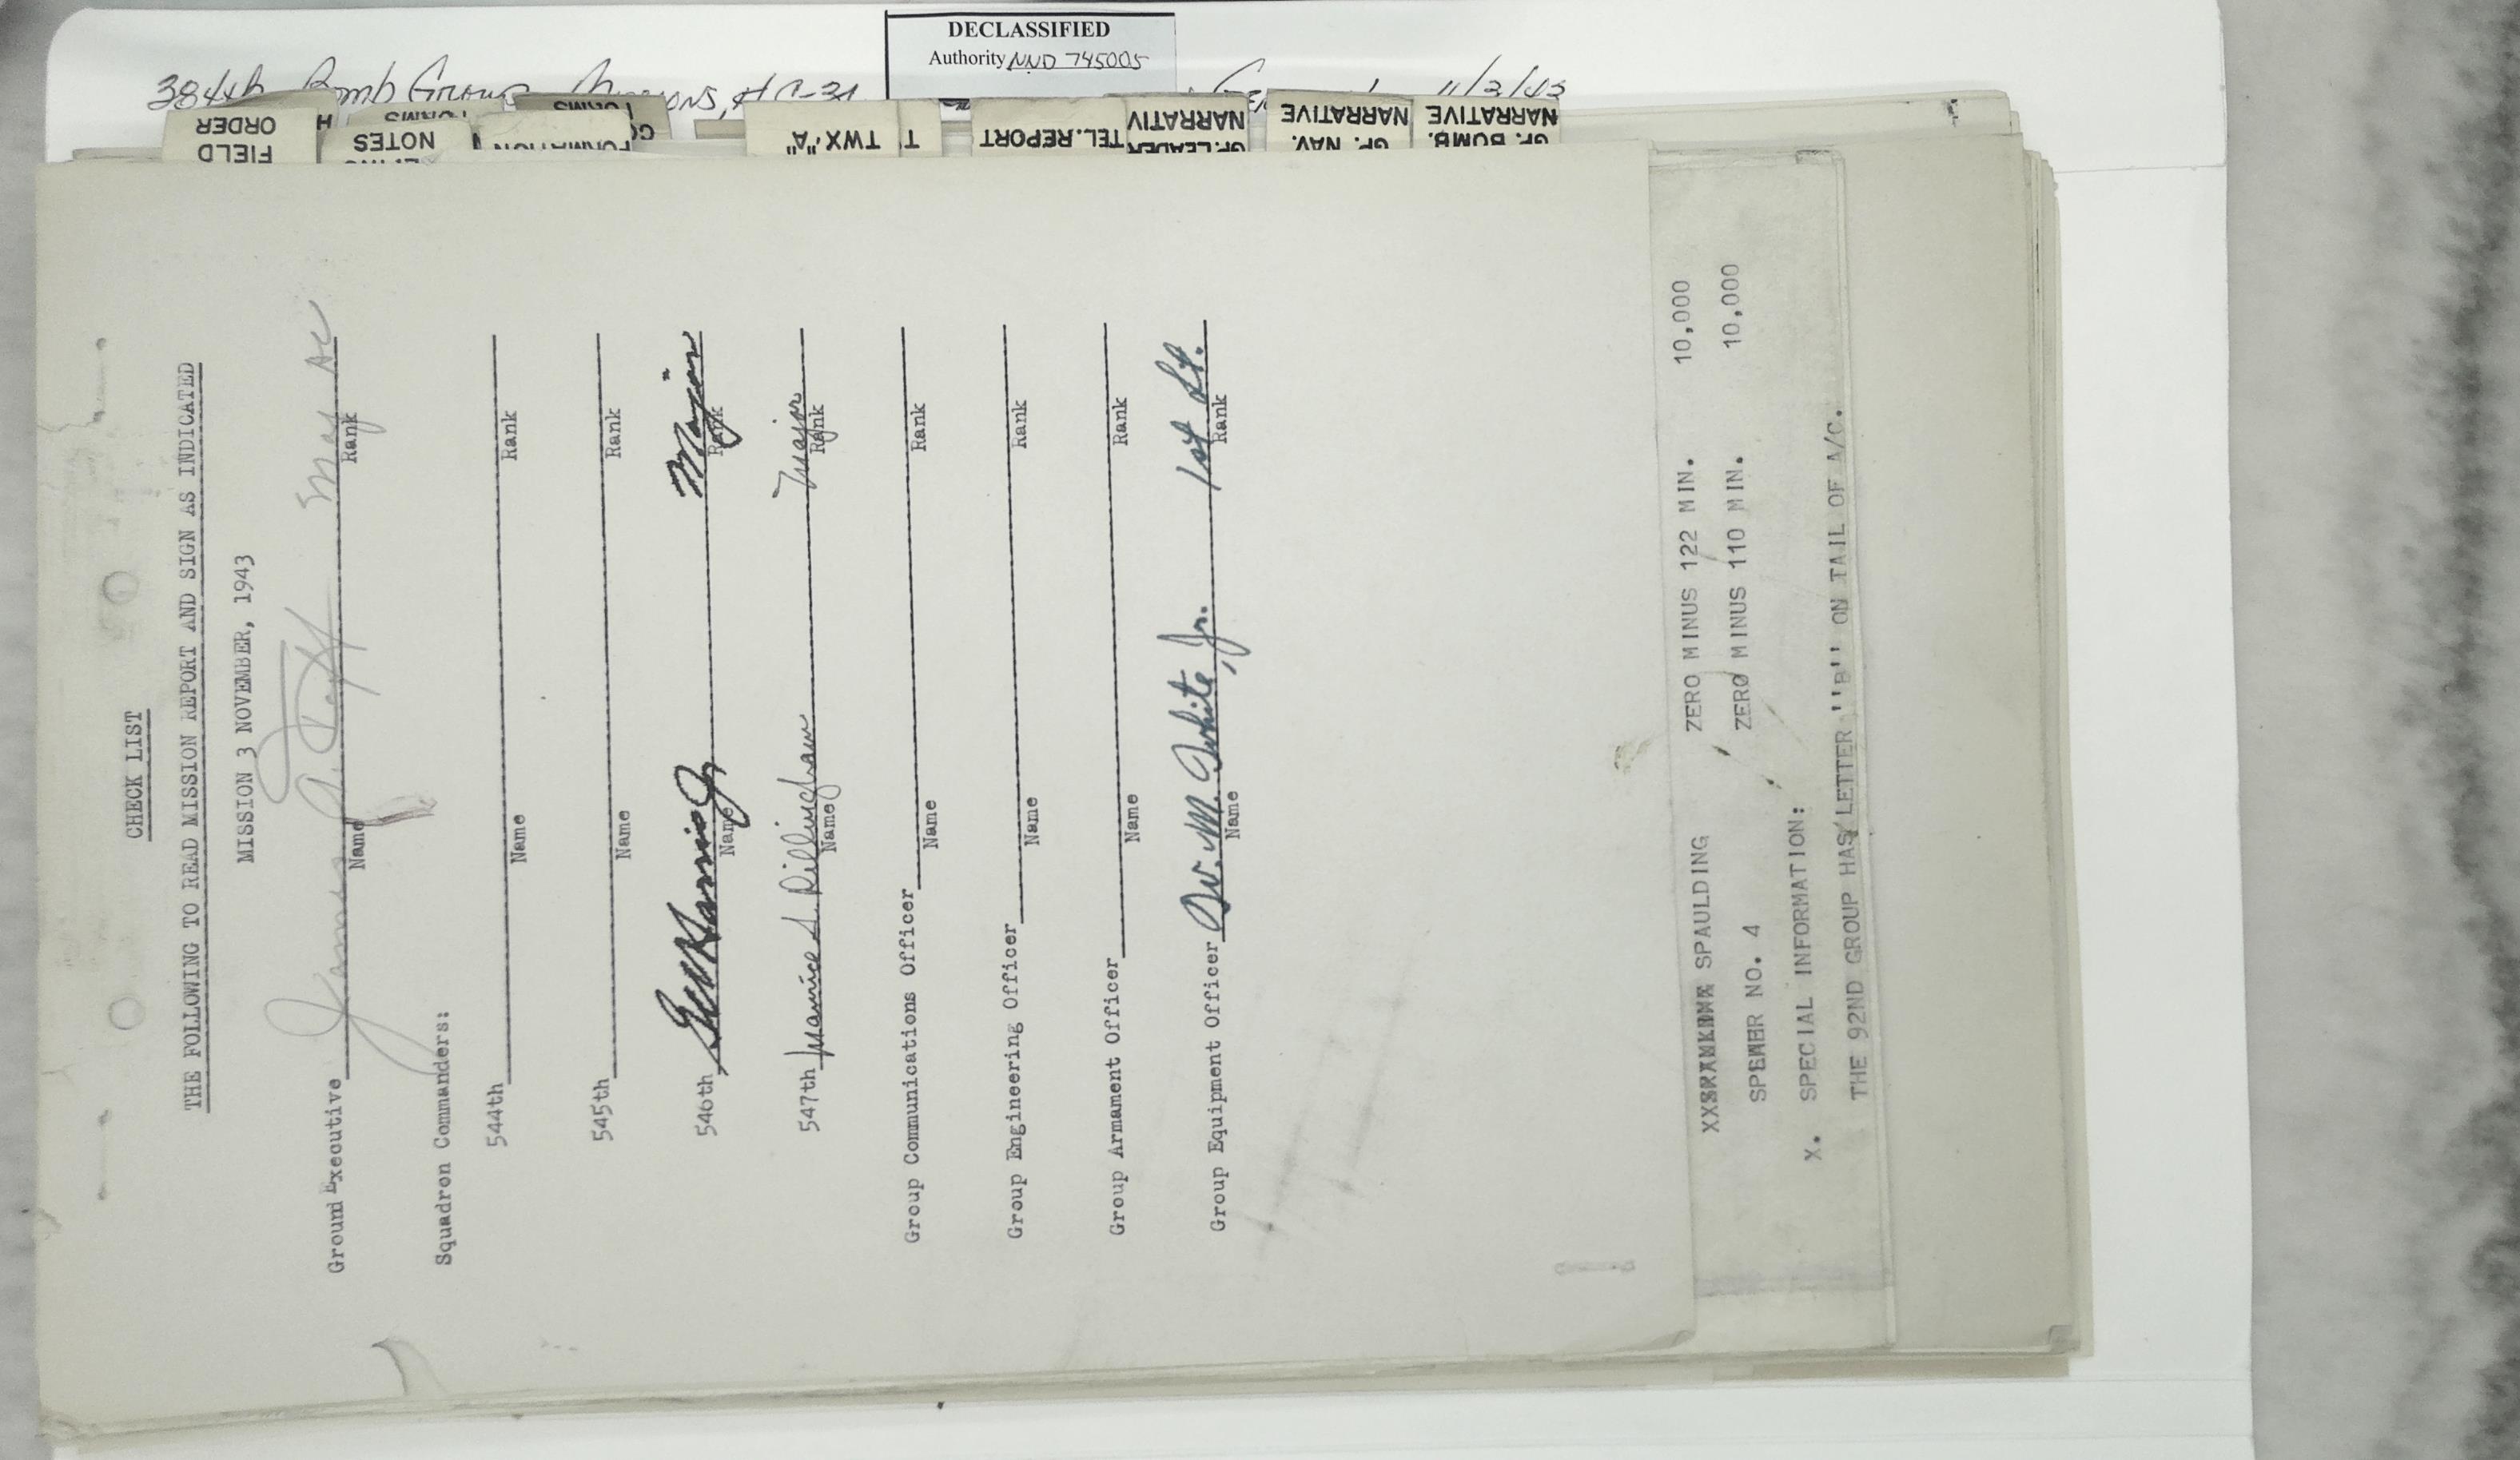 DECLASSIFIED
Authority NND 745005
384th Bomb Group 11/3/43
FIELD
ORDER
NOTES
TWX-"A"
TEL. REPORT
GP. LEADER
NARRATIV
GP. NAV.
NARRATIVE
GP. BOMB.
NARRATIVE
CHECK LIST
THE FOLLOWING TO READ MISSION REPORT AND SIGN AS INDICATED
MISSION 3 NOVEMBER, 1943
Ground Executive James Maj AC
Name Rank
Squadron Commanders:
544th
Name Rank
545th
Name Rank
546th GW Harris Jr Major
Name Rank
547th Maurice S. Dillingham Major
Name Rank
Group Communications Officer
Name Rank
Group Engineering Officer
Name Rank
Group Armament Officer
Name Rank
Group Equipment Officer W. M. White, Jr. 1st Lt.
Name Rank
SPAULDING ZERO MINUS 122 MIN. 10,000
NO. 4 ZERO MINUS 110 MIN. 10,000
X. SPECIAL INFORMATION:
THE 92ND GROUP HAS LETTER ''B'' ON TAIL OF A/C.